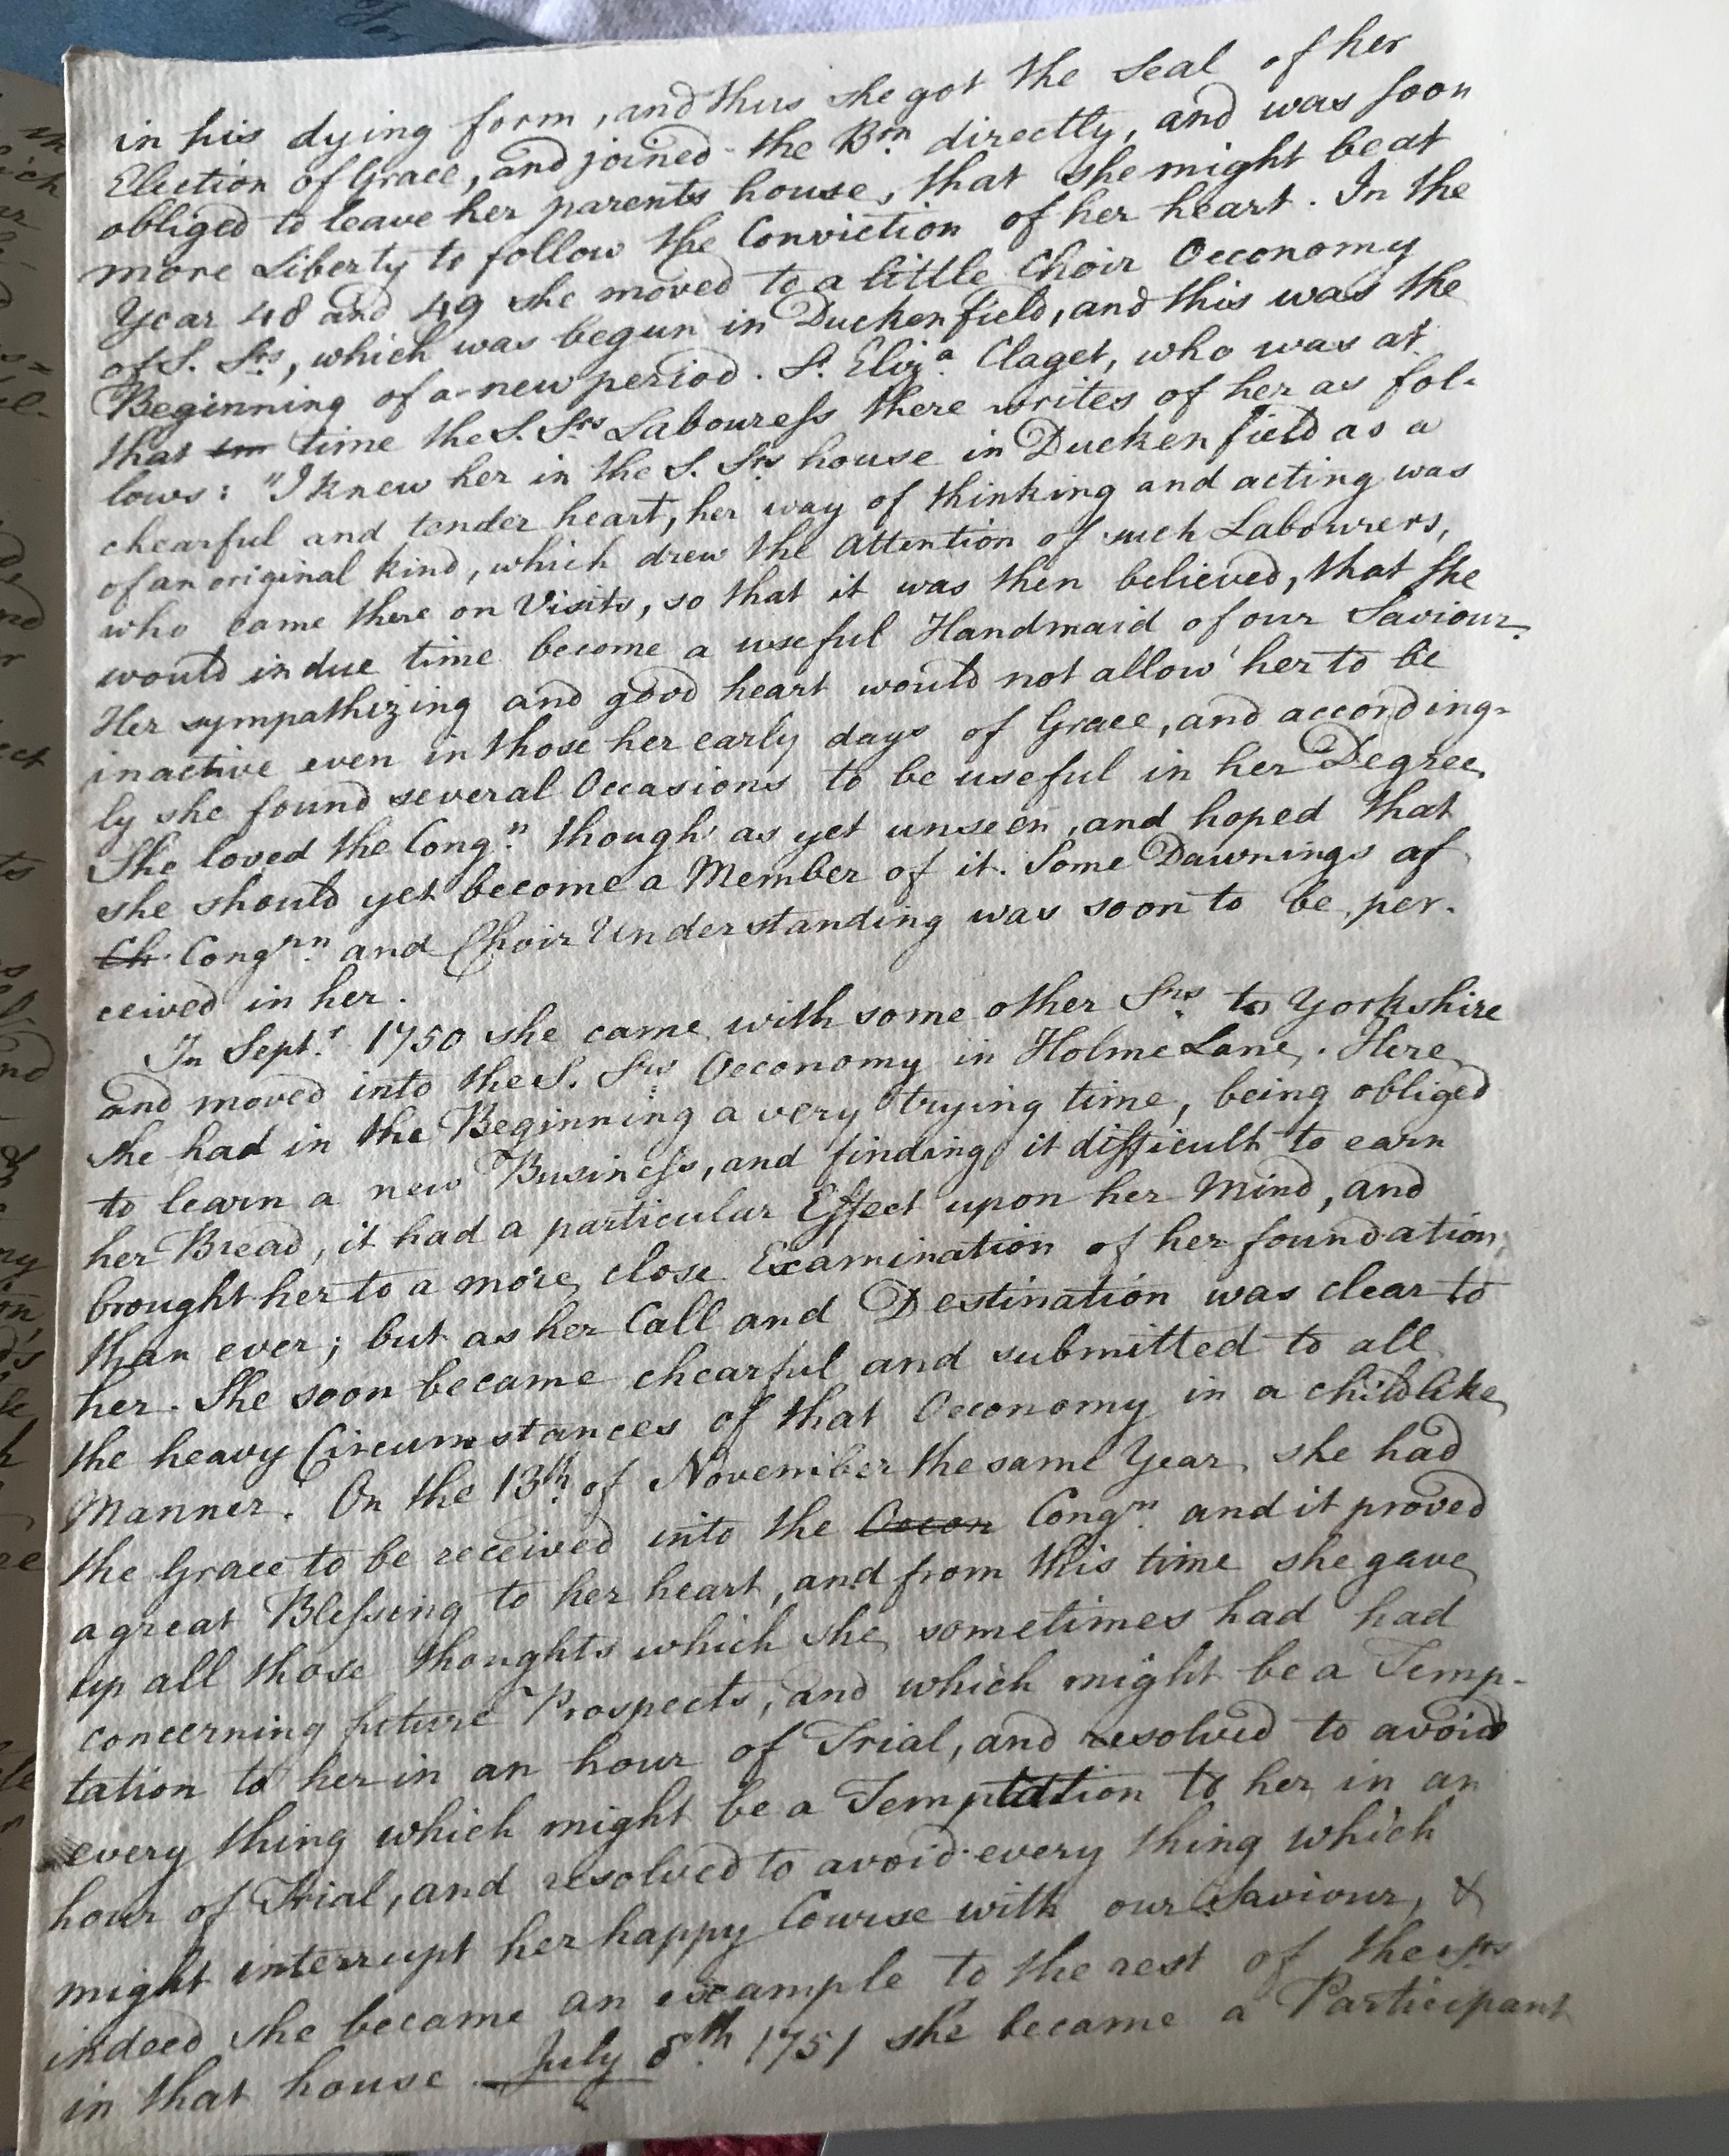 in his dying form, and thus she got the Seal of her
Election of Grace, and joined the Brn directly, and was soon
obliged to leave her parents house, that she might be at
more Liberty to follow the Conviction of her heart. In the
Year 48 and 49 she moved to a little Choir Oeconomy
of S. Srs, which was begun in Duckenfield, and this was the
Beginning of a new period. Sr. Eliza. Claget, who was at
that time the S. Srs Labouress there writes of her as fol-
lows: "I knew her in the S. Srs house in Duckenfield as a
chearful and tender heart, her way of thinking and acting was
of an original kind, which drew the Attention of such Labourers,
who came there on Visits, so that it was then believed, that she
would in due time become a useful Handmaid of our Saviour.
Her sympathizing and good heart would not allow her to be
inactive even in those her early days of Grace, and according-
ly she found several Occasions to be useful in her Degree.
She loved the Congn. though as yet unseen, and hoped that
she should yet become a Member of it. Some Dawnings of
Ch Congnn. and Choir Understanding was soon to be per-
ceived in her.
In Septr. 1750 she came with some other Srs. to Yorkshire
and moved into the S. Srs. Oeconomy in Holme Lane. Here
she had in the Beginning a very trying time, being obliged
to learn a new Business, and finding it difficult to earn
her Bread, it had a particular Effect upon her Mind, and
brought her to a more close Examination of her foundation,
than ever; but as her Call and Destination was clear to
her. She soon became chearful and submitted to all
the heavy Circumstances of that Oeconomy in a childlike
Manner. On the 13th. of November the same Year she had
the Grace to be received into the Oecon Congn. and it proved
a great Blessing to her heart, and from this time she gave
up all those thoughts which she sometimes had had
concerning future Prospects, and which might be a Temp-
tation to her in an hour of Trial, and resolved to avoid
every thing which might be a Temptation to her in an
hour of Trial, and resolved to avoid every thing which
might interrupt her happy Course with our Saviour, &
indeed she became an example to the rest of the Srs
in that house July 8th. 1751 she became a Participant